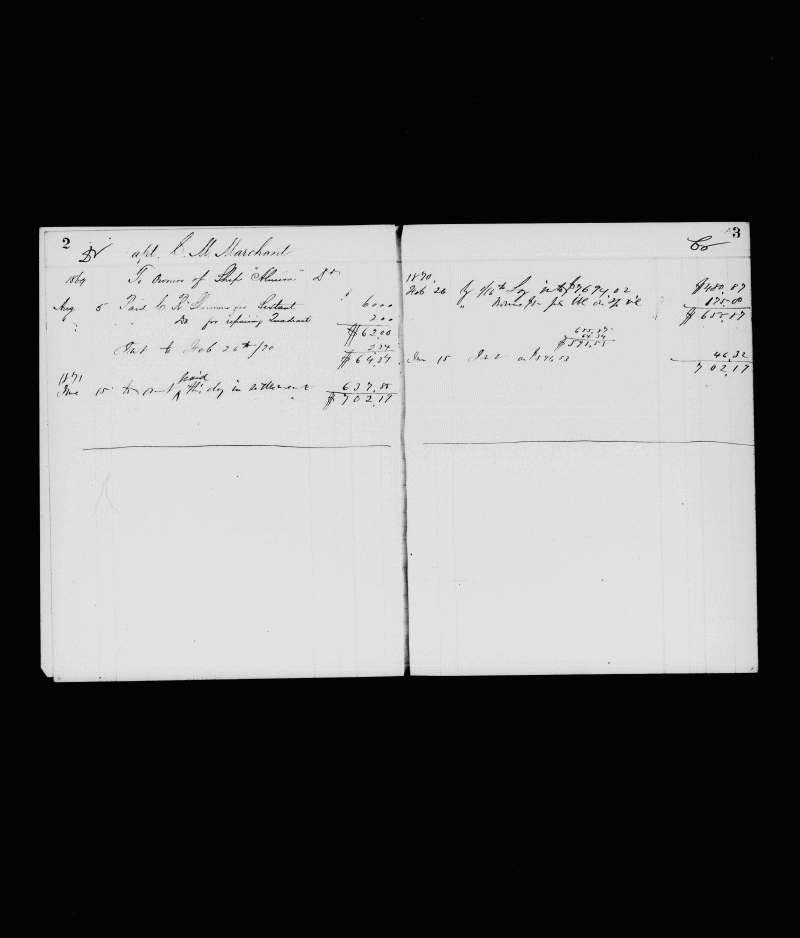 2
Dr Capt. C. M. Marchant
1869 To Owners of Ship "Almira" Dr
Aug 5 Paid C. R. for Sextant 60 00
" " Do for repairing Quadrant 2 00
$62 00
Int to Feb 26th /70 2.34
$64.34
1871
paid
June 15 to amt this day in settlement 637.85
$702.17
3
Cr
1870
Feb 26 By 1/16th Lay $7694.02 $480.87
" Bonus 175.00
$655.87
655.87
64.34
$591.53
June 15 Int on $591.53 46.32
702.17